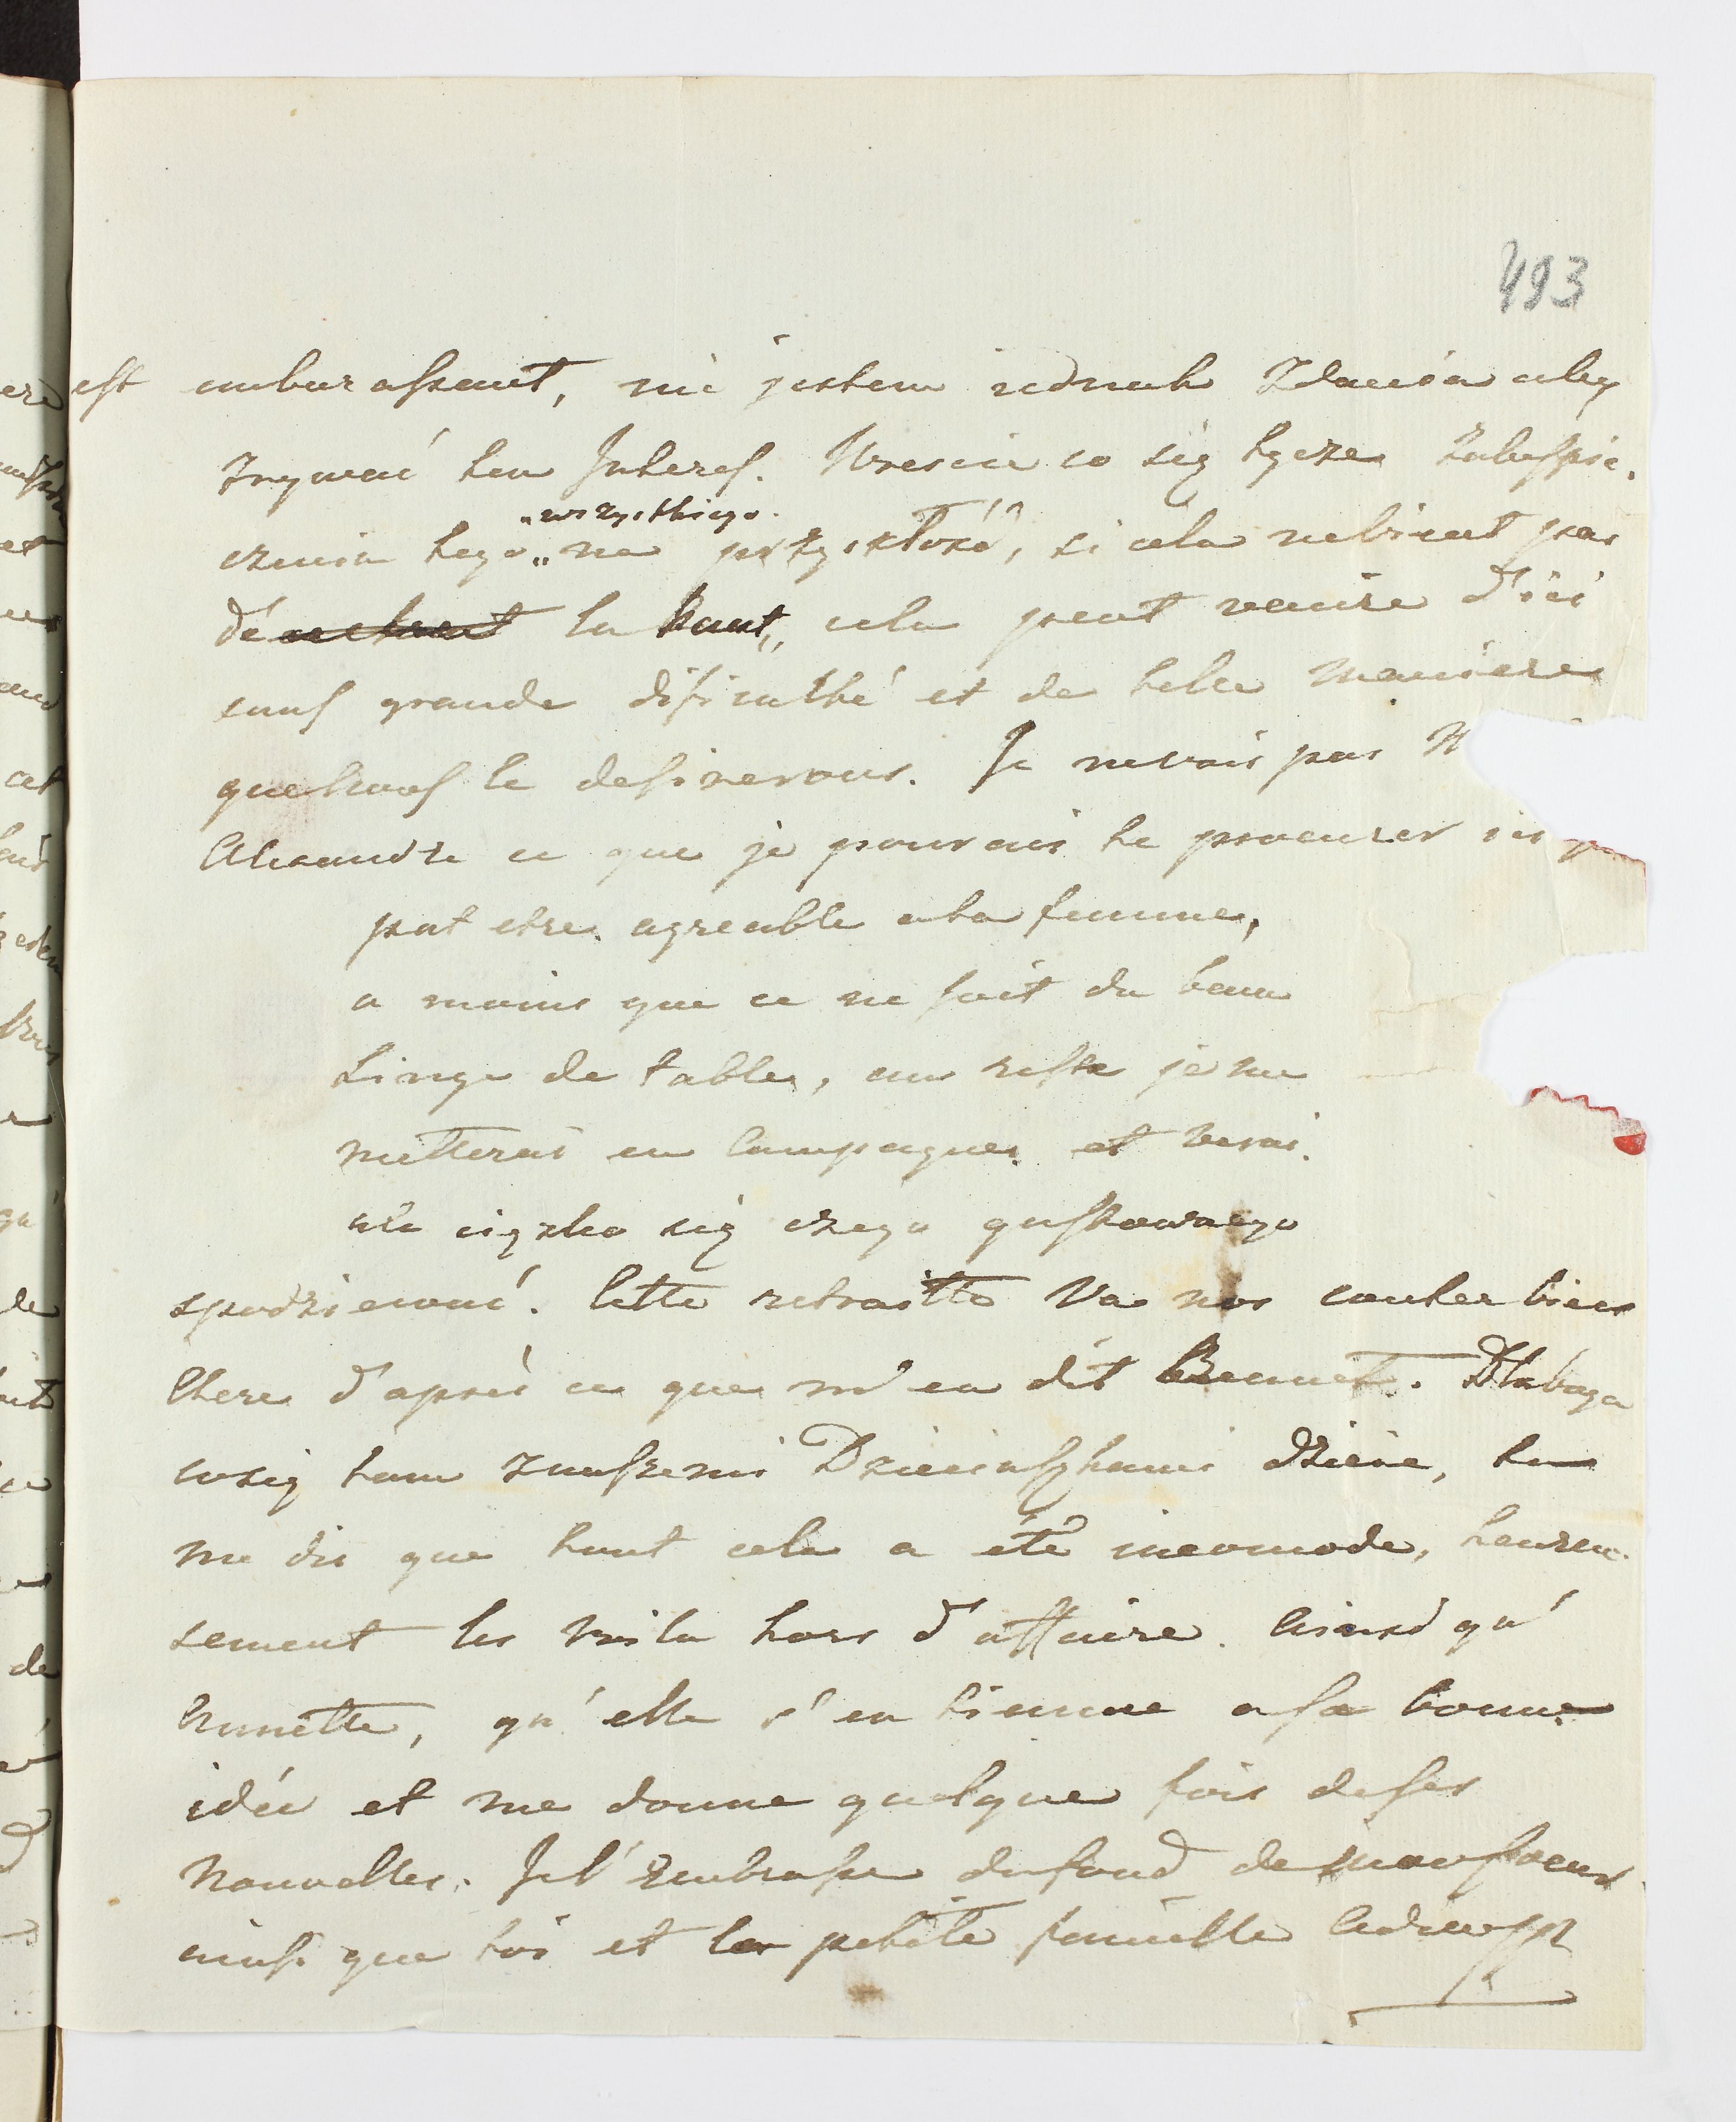 493
est embarassant, nie jestem iednak Zdania aby
zrywać ten Interes. Wreście co się tycze Zabespie.
czenia tego „wszystkiego. „ na przyszłość, si cela nevient pas
de la haut„ cela peut venire d'ici
sans grande dificulté et de telle maniere
que nous le desirerons. Je nevois pas
Alexandre ce que je pourrais te procurer ici
put etre agreable a ta femme,
a moins que ce ne soit du beau
Linge de table, au reste je me
metterai en Campagne et verai.
nie ciężko się czego gustownego
spodziewać. Cette retraitte Va nos couter bien
Chere d'aprés ce que m'en dit Dlaboga
cosię tam znaszemi Dzieciaszkami dzieie, tu
me dis que tout cela a été incomode, heureu.
sement les voila hors d'affaire. Ainsi qu'
Annette, qu'elle s'en tienne a sa bonne
idée et me donne quelque fois deses
Nouvelles. Je l'embrasse dufond de mon coeur
ainsi que toi et la petite famille